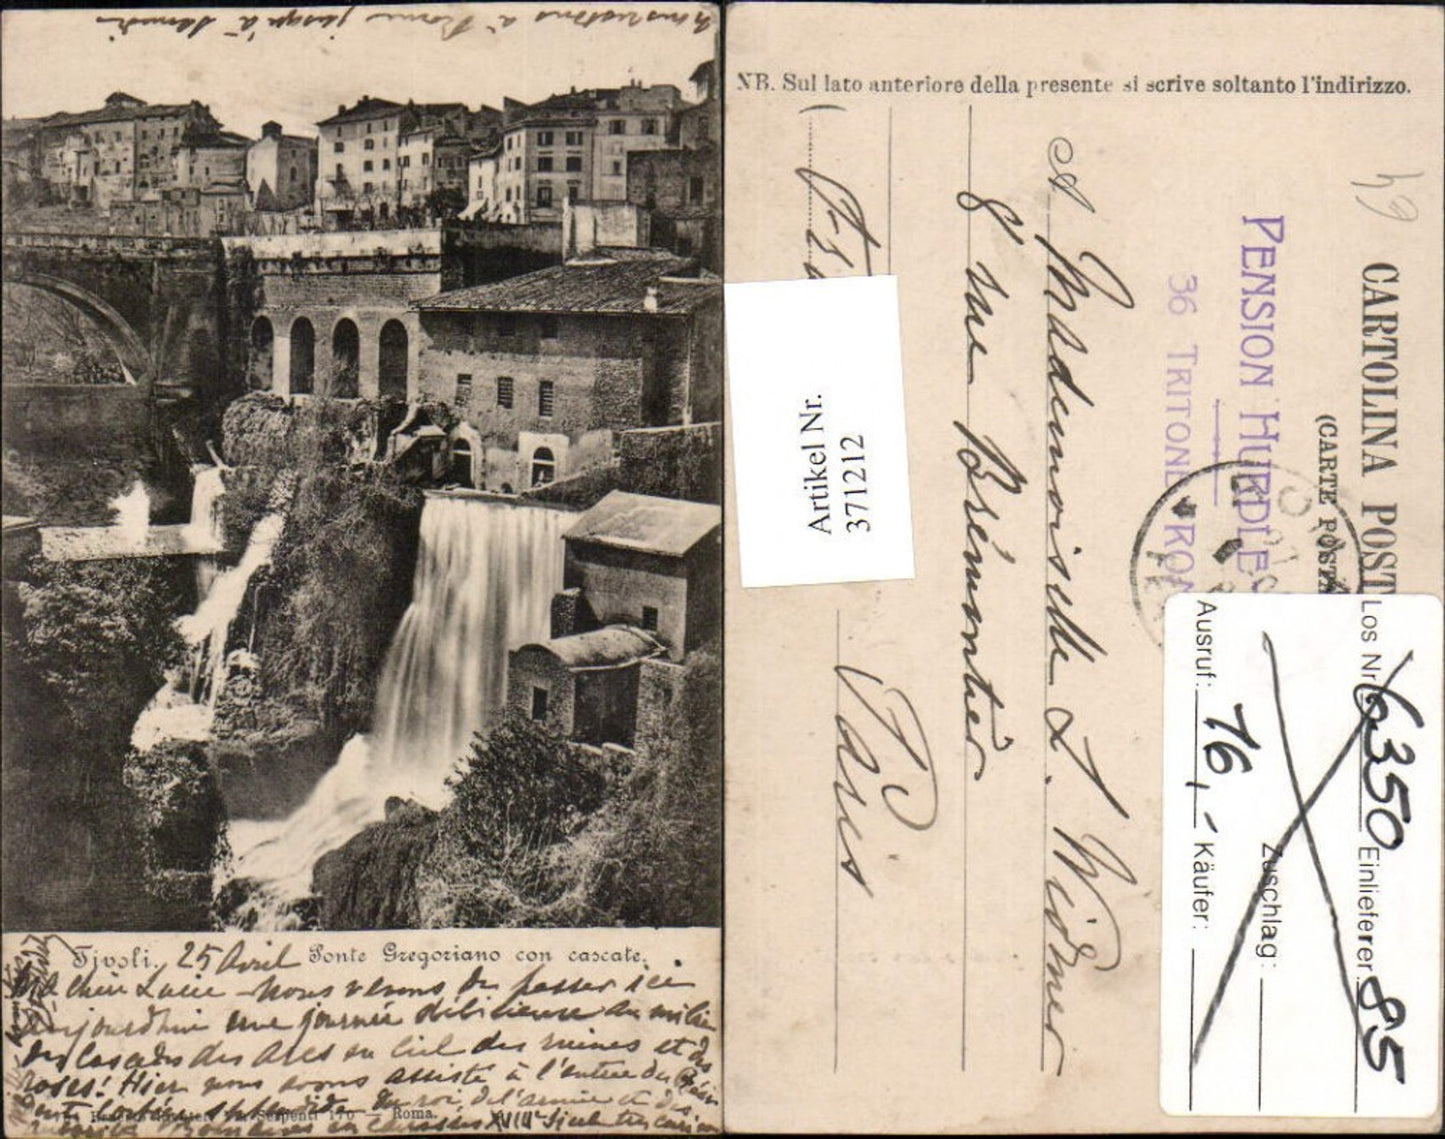 nous restons à Rome jusqu'à Samedi
Tivoli. 25 Avril Ponte Gregoriano con cascate.
Ma chère Lucie - Nous venons de passer ici
aujourdhui une journée délicieuse au milieu
des cascades des arcs en ciel des ruines et des
roses! Hier nous avons assisté à l'entrée du
du roi de l'armée et des
Serpenti 170 — Roma.
en carrosses XVIIIe Siècle très
NB. Sul lato anteriore della presente si scrive soltanto l'indirizzo.
CARTOLINA POST
(CARTE POSTA
49
PENSION HURDLE
36 TRITONE ROM
A Mademoiselle L. Widmer
8 rue Brémontier
Paris
Artikel Nr.
3712 12
Los Nr. 6350 Einlieferer: 85
Zuschlag:
Ausruf: 16,- Käufer: